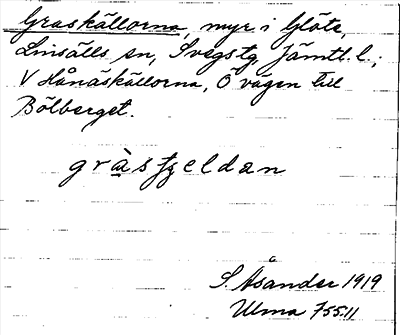 Graskällorna, myr i Glöte,
Linsälls sn, Svegs tg, Jämtl. l.;
V Hånäskällorna, Ö vägen till
Bölberget.
gràstjeldan
S. Åsander 1919
Ulma 755:11